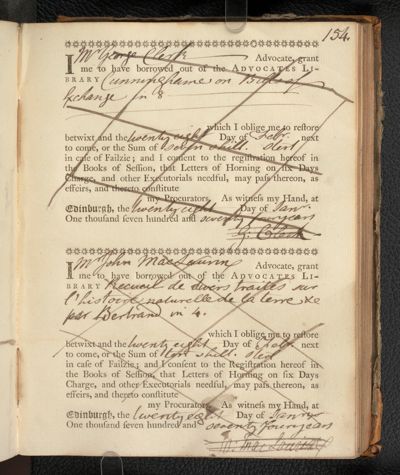 154.
I Mr George Clerk Advocate, grant
me to have borrowed out of the ADVOCATES LI-
BRARY Cunninghame on Bills of
Exchange in 8
which I oblige me to restore
betwixt and the twenty eight Day of Febr. next
to come, or the Sum of seven shill. sterl
in case of Failzie; and I consent to the registration hereof in
the Books of Session, that Letters of Horning on six Days
Charge, and other Executorials needful, may pass thereon, as
effeirs, and thereto constitute
my Procurators. As witness my Hand, at
Edinburgh, the twenty eight Day of Janr.
One thousand seven hundred and seventy four years
G. Clerk
I Mr John MacLaurin Advocate, grant
me to have borrowed out of the ADVOCATES LI-
BRARY Recueil de divers traités sur
l'histoire naturelle de la terre &c
par Bertrand in 4.
which I oblige me to restore
betwixt and the twenty eight Day of Febr. next
to come, or the Sum of shill. sterl
in case of Failzie; and I consent to the Registration hereof in
the Books of Session, that Letters of Horning on six Days
Charge, and other Executorials needful, may pass thereon, as
effeirs, and thereto constitute
my Procurators. As witness my Hand, at
Edinburgh, the twenty eight Day of Janry
One thousand seven hundred and seventy four years
MacLaurin